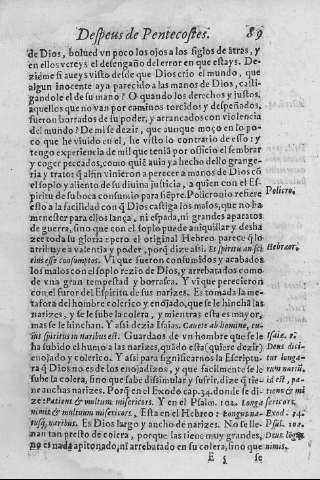 Despeus de Pentecostes. 89
de Dios, bolued vn poco los ojos a los siglos de atras, y
en ellos vereys el desengaño del error en que estays. De-
zidme si aueys visto desde que Dios crio el mundo, que
algun innocente aya parecido a las manos de Dios, casti-
gandole el de su mano? O quando los derechos y justos,
aquellos que no van por caminos torcidos y despeñados,
fueron borrados de su poder, y arrancados con violencia
del mundo? De mi se dezir, que aunque moço en lo po-
co que he viuido en el, he visto lo contrario de esso: y
tengo experiencia de mil que tenia por officio el sembrar
y coger peccados, como quiē auia ya hecho dello grange-
ria y trato: q̃ al fin vinieron a perecer a manos de Dios cõ
el soplo y aliento de su diuina justicia, a quien con el Es-
piritu de su boca consumio para siēpre. Policronio refiere
Policro.
esto a la facilidad con q̃ Dios castiga los malos, que no ha
menester para ellos lança, ni espada, ni grandes aparatos
de guerra, sino que con el soplo puede aniquillar y desha
zer toda su gloria: pero el original Hebreo parece q̃ lo
atribuye a valentia y poder, porq̃ dize assi. Et spiritu an so
Hebraor.
eius esse consumptos. Vi que fueron consumidos y acabados
los malos con el soplo rezio de Dios, y arrebatados como
de vna gran tempestad y borrasca. Y vi que perecieron
con el furor del Espiritu de sus narizes. Es tomada la me-
tafora del hombre colerico y enojado, que se le hincha las
narizes, y se le sube la colera, y mientras esta es mayor,
mas se le hinchan. Y assi dezia Isaias. Cauete ab homine, cu-
Isaiæ. 2.
ius spiritus in naribus est. Guardaos de vn hombre que se le
Deus dici-
ha subido el humo a las narizes, quãdo esta (quiere dezir)
tur longa-
enojado y colerico. Y assi para significarnos la Escriptu-
rum nariũ,
ra q̃ Dios no es de los enojadizos, y que facilmente se le
id est, pa-
sube la colera, sino que sabe dissimular y sufrir, dize q̃ tie-
tiens & mi
ne anchas narizes. Porq̃ en el Exodo cap. 34. donde se di-
sericors.
ze: Patient & multum misericors. Y en el Psalm. 102. Longa
Exod. 34.
nimis & multum misericors, Esta en el Hebreo: Longus na-
Psal. 102.
rusq, naribus. Es Dios largo y ancho de narizes. No se lle-
Deus longa
nan tan presto de colera, porque las tiene muy grandes,
nimis.
no es nada apitonado, ni arrebatado en su colera, sino que
E 5 se